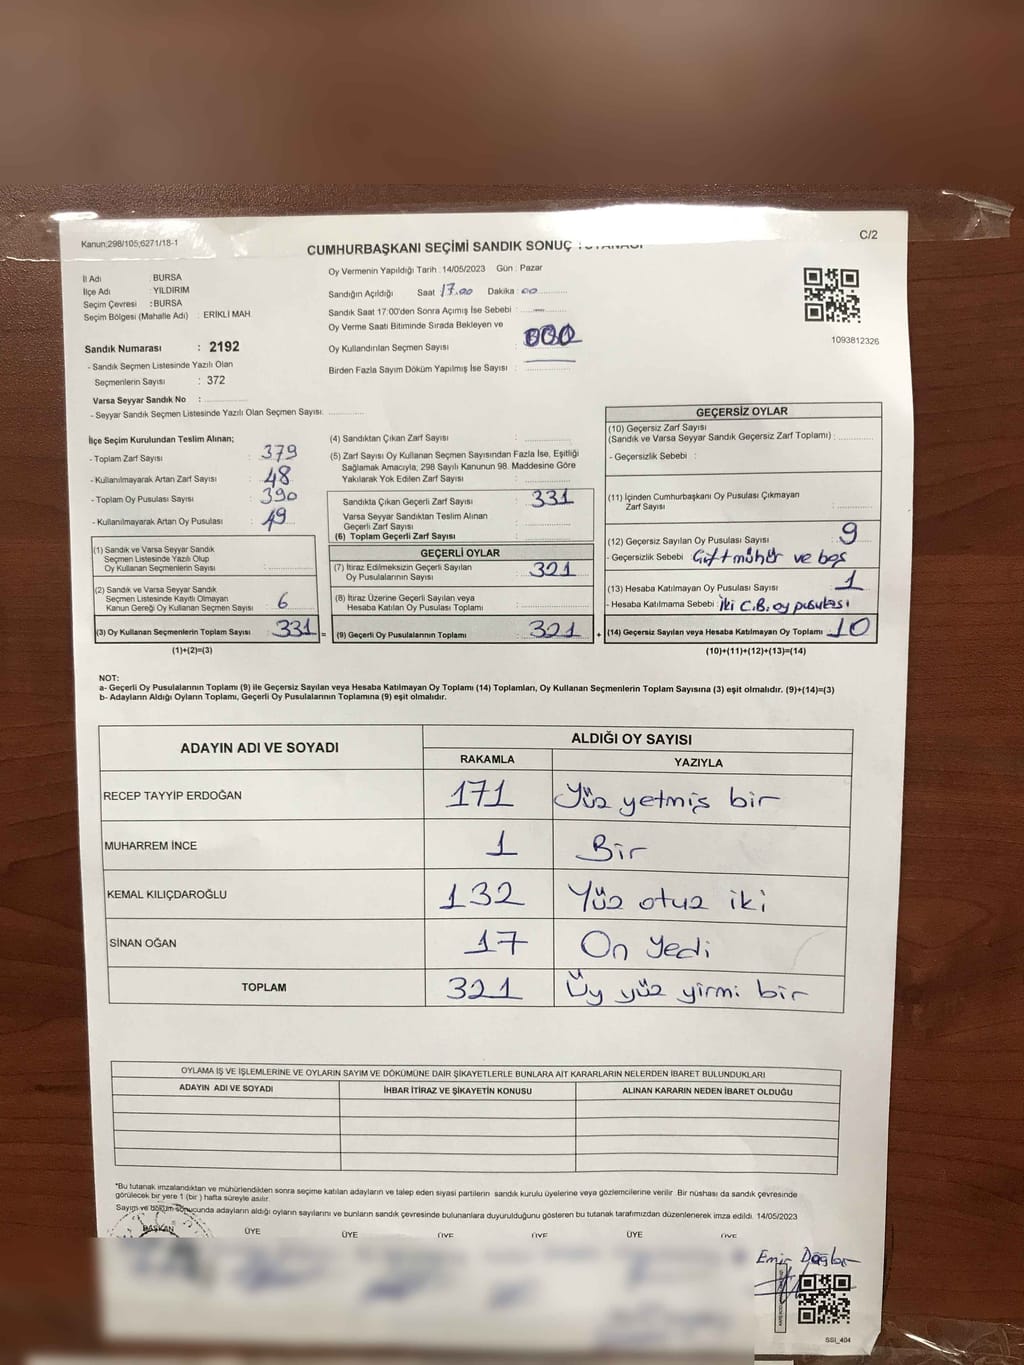 Kanun;298/105;6271/18-1
C/2
CUMHURBAŞKANI SEÇİMİ SANDIK SONUÇ TUTANAĞI
İl Adı : BURSA
İlçe Adı : YILDIRIM
Seçim Çevresi : BURSA
Seçim Bölgesi (Mahalle Adı) : ERİKLİ MAH.
Sandık Numarası : 2192
- Sandık Seçmen Listesinde Yazılı Olan
Seçmenlerin Sayısı : 372
Varsa Seyyar Sandık No :
- Seyyar Sandık Seçmen Listesinde Yazılı Olan Seçmen Sayısı:
Oy Vermenin Yapıldığı Tarih : 14/05/2023 Gün : Pazar
Sandığın Açıldığı Saat 17.00 Dakika : 00
Sandık Saat 17:00'den Sonra Açımış İse Sebebi : —
Oy Verme Saati Bitiminde Sırada Bekleyen ve
Oy Kullandırılan Seçmen Sayısı : 000
Birden Fazla Sayım Döküm Yapılmış İse Sayısı :
1093812326
İlçe Seçim Kurulundan Teslim Alınan;
- Toplam Zarf Sayısı : 379
- Kullanılmayarak Artan Zarf Sayısı : 48
- Toplam Oy Pusulası Sayısı : 390
- Kullanılmayarak Artan Oy Pusulası : 49
(1) Sandık ve Varsa Seyyar Sandık
Seçmen Listesinde Yazılı Olup
Oy Kullanan Seçmenlerin Sayısı :
(2) Sandık ve Varsa Seyyar Sandık
Seçmen Listesinde Kayıtlı Olmayan
Kanun Gereği Oy Kullanan Seçmen Sayısı : 6
(3) Oy Kullanan Seçmenlerin Toplam Sayısı : 331 =
(1)+(2)=(3)
(4) Sandıktan Çıkan Zarf Sayısı :
(5) Zarf Sayısı Oy Kullanan Seçmen Sayısından Fazla İse, Eşitliği
Sağlamak Amacıyla, 298 Sayılı Kanunun 98. Maddesine Göre
Yakılarak Yok Edilen Zarf Sayısı :
Sandıkta Çıkan Geçerli Zarf Sayısı : 331
Varsa Seyyar Sandıktan Teslim Alınan
Geçerli Zarf Sayısı :
(6) Toplam Geçerli Zarf Sayısı :
GEÇERLİ OYLAR
(7) İtiraz Edilmeksizin Geçerli Sayılan
Oy Pusulalarının Sayısı : 321
(8) İtiraz Üzerine Geçerli Sayılan veya
Hesaba Katılan Oy Pusulası Toplamı :
(9) Geçerli Oy Pusulalarının Toplamı : 321 +
GEÇERSİZ OYLAR
(10) Geçersiz Zarf Sayısı
(Sandık ve Varsa Seyyar Sandık Geçersiz Zarf Toplamı) :
- Geçersizlik Sebebi :
(11) İçinden Cumhurbaşkanı Oy Pusulası Çıkmayan
Zarf Sayısı :
(12) Geçersiz Sayılan Oy Pusulası Sayısı : 9
- Geçersizlik Sebebi : Çift mühür ve boş
(13) Hesaba Katılmayan Oy Pusulası Sayısı : 1
- Hesaba Katılmama Sebebi : İki C.B. oy pusulası
(14) Geçersiz Sayılan veya Hesaba Katılmayan Oy Toplamı : 10
(10)+(11)+(12)+(13)=(14)
NOT:
a- Geçerli Oy Pusulalarının Toplamı (9) ile Geçersiz Sayılan veya Hesaba Katılmayan Oy Toplamı (14) Toplamları, Oy Kullanan Seçmenlerin Toplam Sayısına (3) eşit olmalıdır. (9)+(14)=(3)
b- Adayların Aldığı Oyların Toplamı, Geçerli Oy Pusulalarının Toplamına (9) eşit olmalıdır.
ADAYIN ADI VE SOYADI
ALDIĞI OY SAYISI
RAKAMLA YAZIYLA
RECEP TAYYİP ERDOĞAN 171 Yüz yetmiş bir
MUHARREM İNCE 1 Bir
KEMAL KILIÇDAROĞLU 132 Yüz otuz iki
SİNAN OĞAN 17 On yedi
TOPLAM 321 Üç yüz yirmi bir
OYLAMA İŞ VE İŞLEMLERİNE VE OYLARIN SAYIM VE DÖKÜMÜNE DAİR ŞİKAYETLERLE BUNLARA AİT KARARLARIN NELERDEN İBARET BULUNDUKLARI
ADAYIN ADI VE SOYADI İHBAR İTİRAZ VE ŞİKAYETİN KONUSU ALINAN KARARIN NEDEN İBARET OLDUĞU
"Bu tutanak imzalandıktan ve mühürlendikten sonra seçime katılan adayların ve talep eden siyasi partilerin sandık kurulu üyelerine veya gözlemcilerine verilir. Bir nüshası da sandık çevresinde
görülecek bir yere 1 (bir ) hafta süreyle asılır.
Sayım ve döküm sonucunda adayların aldığı oyların sayılarını ve bunların sandık çevresinde bulunanlara duyurulduğunu gösteren bu tutanak tarafımızdan düzenlenerek imza edildi. 14/05/2023
BAŞKAN ÜYE ÜYE ÜYE ÜYE ÜYE ÜYE
SSİ_404